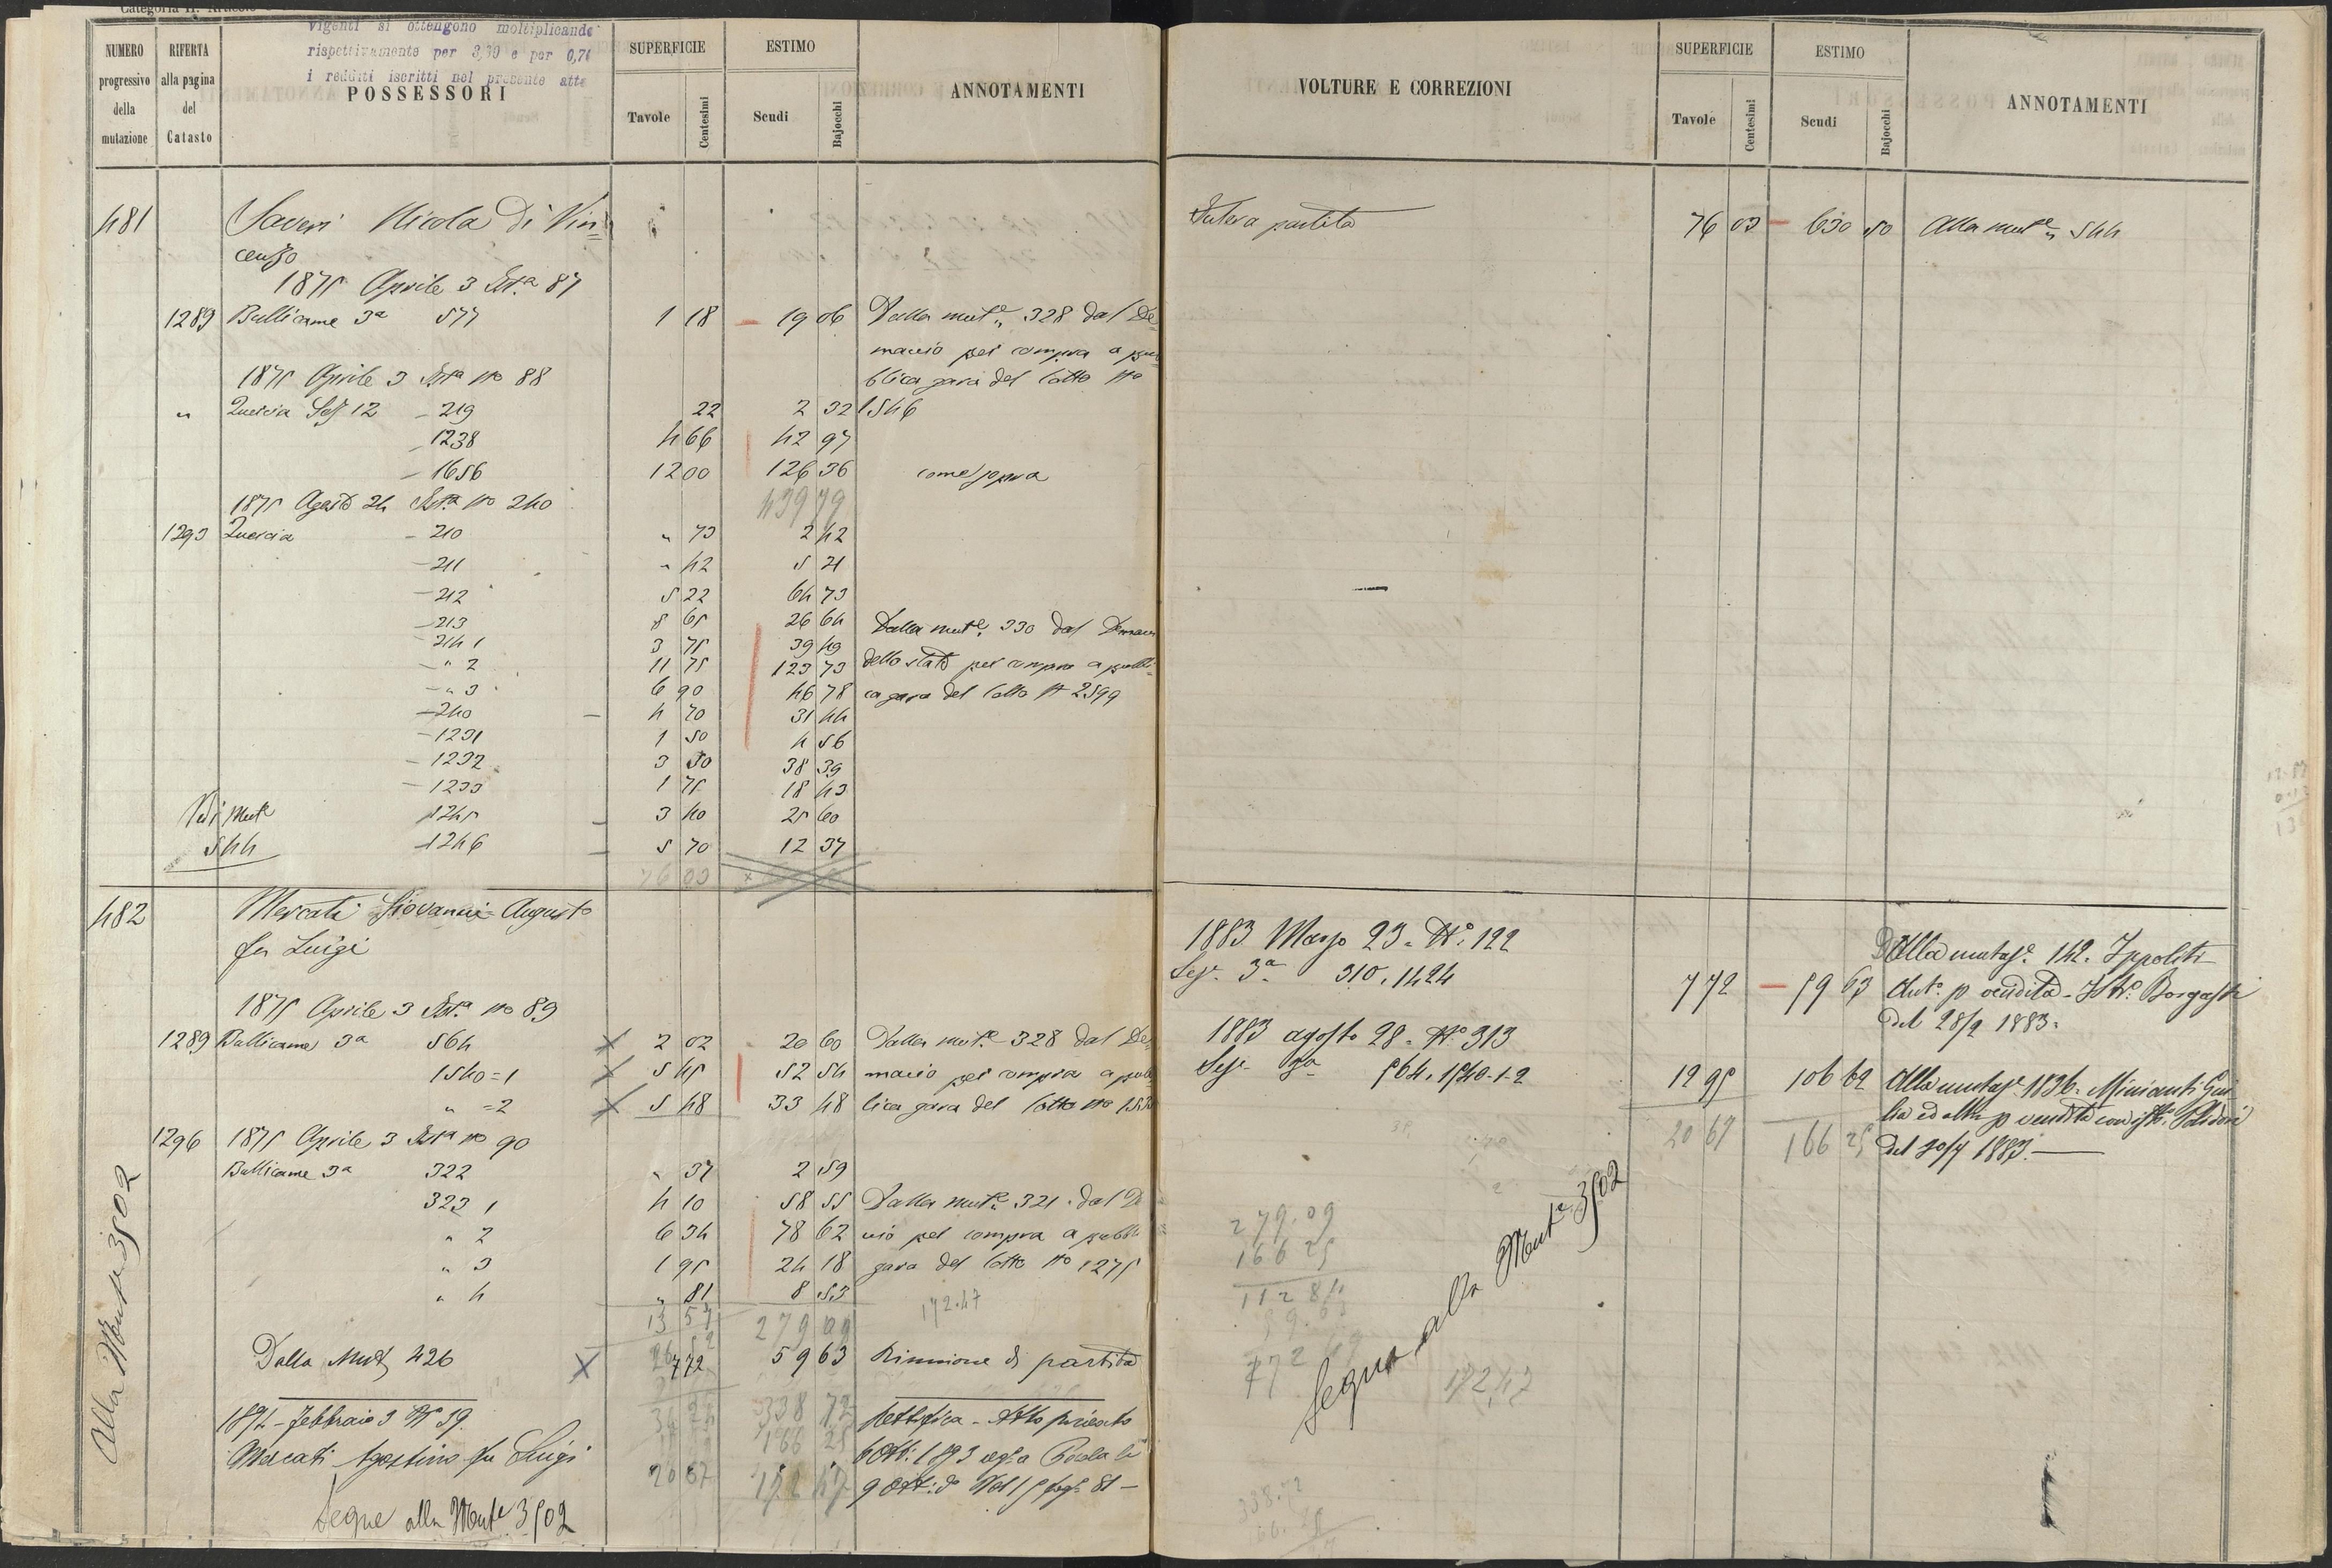 Categoria II.
vigenti si ottengono moltiplicando
rispettivamente per 3,39 e per 0,74
i redditi iscritti nel presente atto
NUMERO progressivo della mutazione
RIFERTA alla pagina del Catasto
POSSESSORI
SUPERFICIE
Tavole Centesimi
ESTIMO
Scudi Bajocchi
ANNOTAMENTI
481 Saveri Nicola di Vin=
cenzo
1875 Aprile 3 Ist.a 87
1289 Bullicame 3a 577 1 18 19 06 Dalla mut.e 328 dal De=
manio per compra a pub
blica gara del lotto No
1875 Aprile 3 Ist.a No 88
" Quercia Sez 12 219 22 2 32 1546
1238 4 66 42 97
1656 12 00 126 36 come sopra
1875 Agosto 24 Ist.a No 240 439 79
1293 Quercia 210 " 73 2 42
211 " 42 5 21
212 5 22 64 73
213 8 65 26 64 Dalla mut.e 330 dal Deman
214 1 3 75 39 49
" 2 11 75 123 73 dello stato per compra a pubbli=
" 3 6 90 46 78 ca gara del lotto No 2599
240 4 70 31 44
1231 1 50 4 56
1232 3 30 38 39
1233 1 75 18 43
Vedi Mut.e 1245 3 40 25 60
544 1246 5 70 12 37
76 03
482 Mercati Giovanni Augusto
fu Luigi
1875 Aprile 3 Ist.a No 89
1289 Bullicame 3a 564 2 02 20 60 Dalla mut.e 328 dal De
1540=1 5 45 52 54 manio per compra a pub
" =2 5 48 33 48 lica gara del lotto No 153
1296 1875 Aprile 3 Ist.a No 90
Bullicame 3a 322 " 37 2 59
323 1 4 10 58 55 Dalla mut.e 321 dal De
" 2 6 34 78 62 nio per compra a pubbl
" 3 1 95 24 18 gara del lotto No 1275
" 4 " 81 8 53
172.47
13 57 279 09
Dalla Mut 426 7 72 59 63 Riunione di partita
338 72
1894 - Febbraio 3 No 39. Rettifica - Atto privato
166 25
Mercati Agostino fu Luigi
20 67 172 47
Segue alla Mut.e 3502
Alla Mut.e 3502
VOLTURE E CORREZIONI
SUPERFICIE
Tavole Centesimi
ESTIMO
Scudi Bajocchi
ANNOTAMENTI
Intera partita 76 03 630 50 Alla mut.e 544
1883 Marzo 23. No. 122
Sez. 3a 310, 1424 7 72 59 63 Alla mutaz.e 142. Ippoliti
Ant.o p vendita
del 28/2 1883.
1883 agosto 28. No. 313
Sez. 3a 564, 1540-1-2 12 95 106 62 Alla mutaz.e 1836. Minianti Giu
lia ed altri p vendita
20 67 166 25 del 30/7 1883.
279.09
166 25
112 84
59.63
172 47
172,47
Segue alla Mut.e 3502
338.72